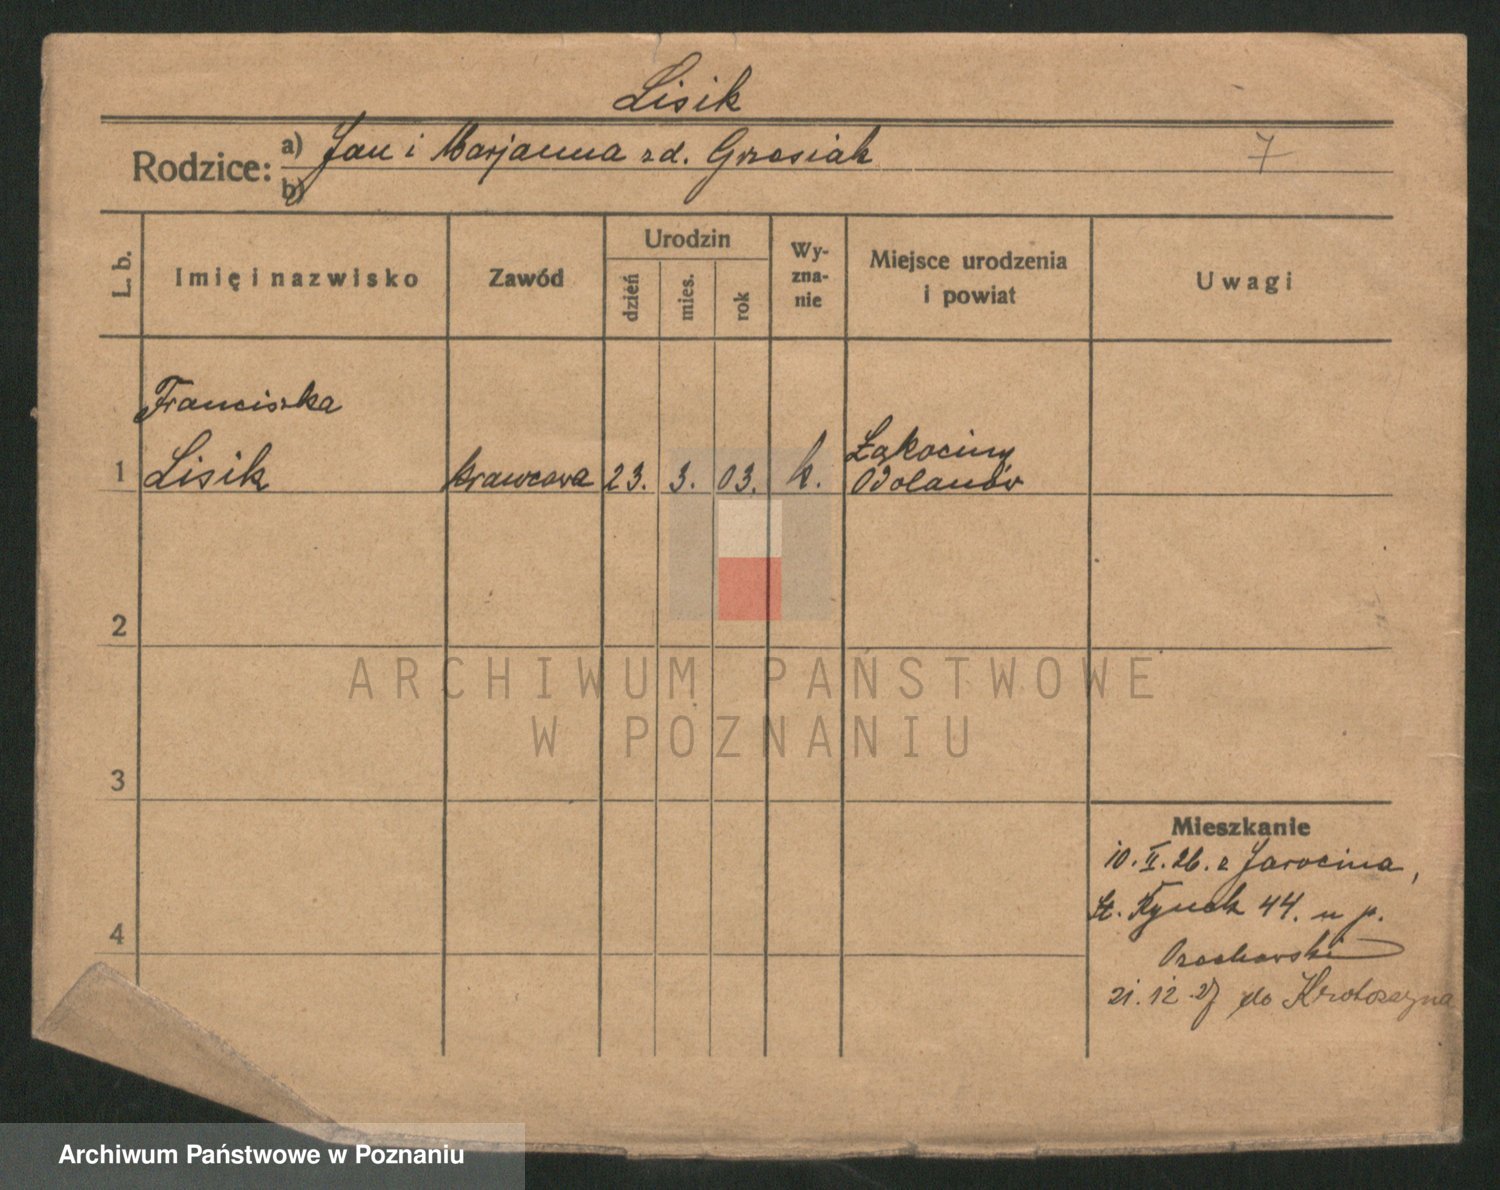 Lisik
Rodzice: a) Jan i Marjanna zd. Grzesiak 7
b)
L. b. Imię i nazwisko Zawód Urodzin dzień mies. rok Wy-zna-nie Miejsce urodzenia i powiat Uwagi
Franciszka
1 Lisik krawcowa 23. 3. 03. k. Łąkociny Odolanów
2
ARCHIWUM PAŃSTWOWE
W POZNANIU
3
Mieszkanie
10. II. 26. z Jarocina,
St. Rynek 44. u p.
4
21. 12 27 do Krotoszyna
Archiwum Państwowe w Poznaniu